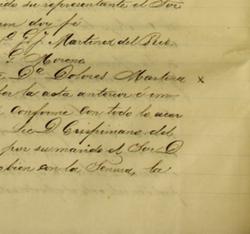 do su representante el Sor
en doy fé
D. G. J. Martinez del Rio
Dª Morena
Dª Dolores Martinez x
der la acta anterior é im
conforme con todo lo acor
Lic D. Crispiniano del
por su mando el Sor D
bien con la Señora, la